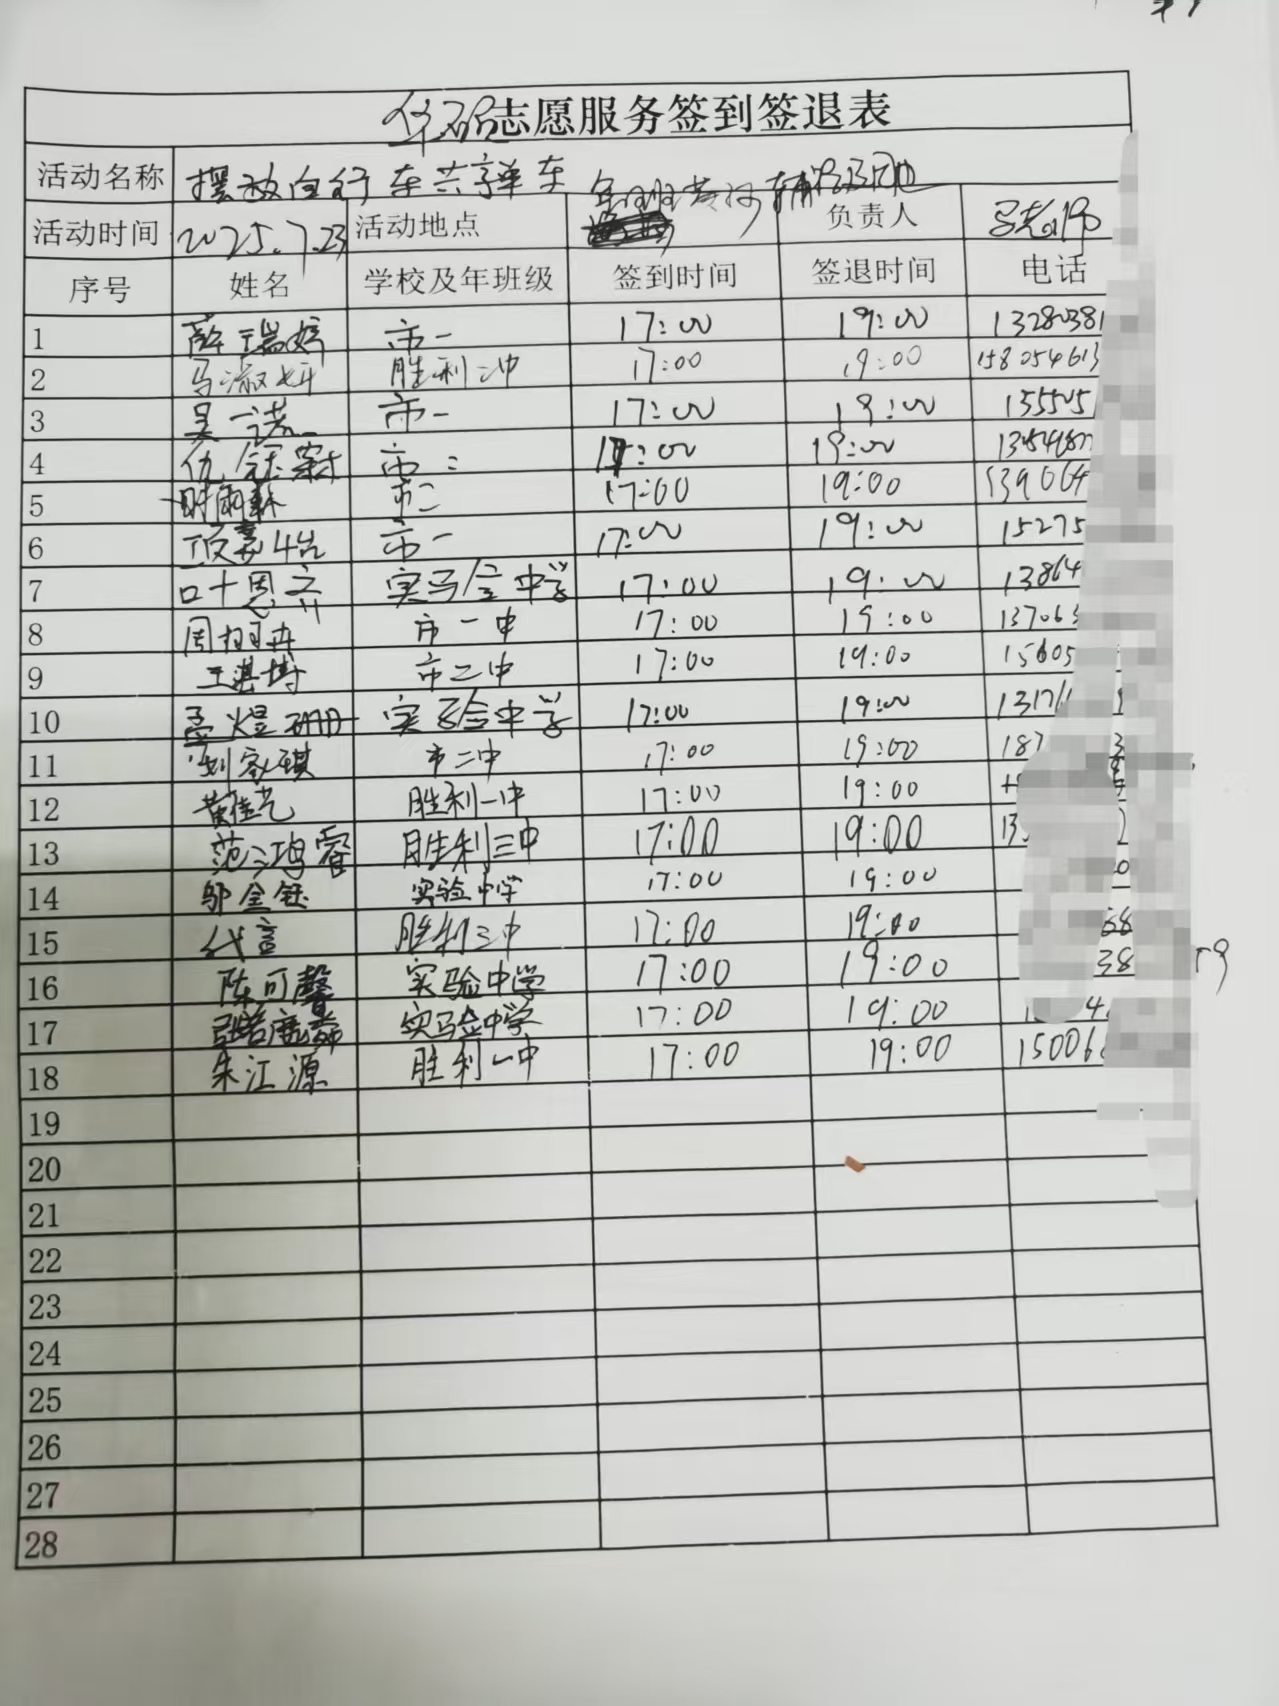 志愿服务签到签退表
活动名称 摆放自行车共享单车
活动时间 2025.7.23 活动地点 负责人
序号 姓名 学校及年班级 签到时间 签退时间 电话
1 薛瑞婷 市一 17:00 19:00 13280381
2 马淑妍 胜利二中 17:00 19:00 158054613
3 吴一诺 市一 17:00 19:00 135505
4 市二 17:00 19:00
5 市二 17:00 19:00 139064
6 市一 17:00 19:00 15275
7 叶恩齐 实验中学 17:00 19:00 13864
8 周栩冉 市一中 17:00 19:00 137063
9 王湛博 市二中 17:00 19:00 15605
10 孟煜珊 实验中学 17:00 19:00 1317
11 刘家琪 市二中 17:00 19:00 187 3
12 黄佳艺 胜利一中 17:00 19:00
13 范鸿睿 胜利三中 17:00 19:00 13
14 邬金钰 实验中学 17:00 19:00
15 代言 胜利三中 17:00 19:00 68
16 陈可馨 实验中学 17:00 19:00 38
17 实验中学 17:00 19:00 1 4
18 朱江源 胜利一中 17:00 19:00 15006
19
20
21
22
23
24
25
26
27
28